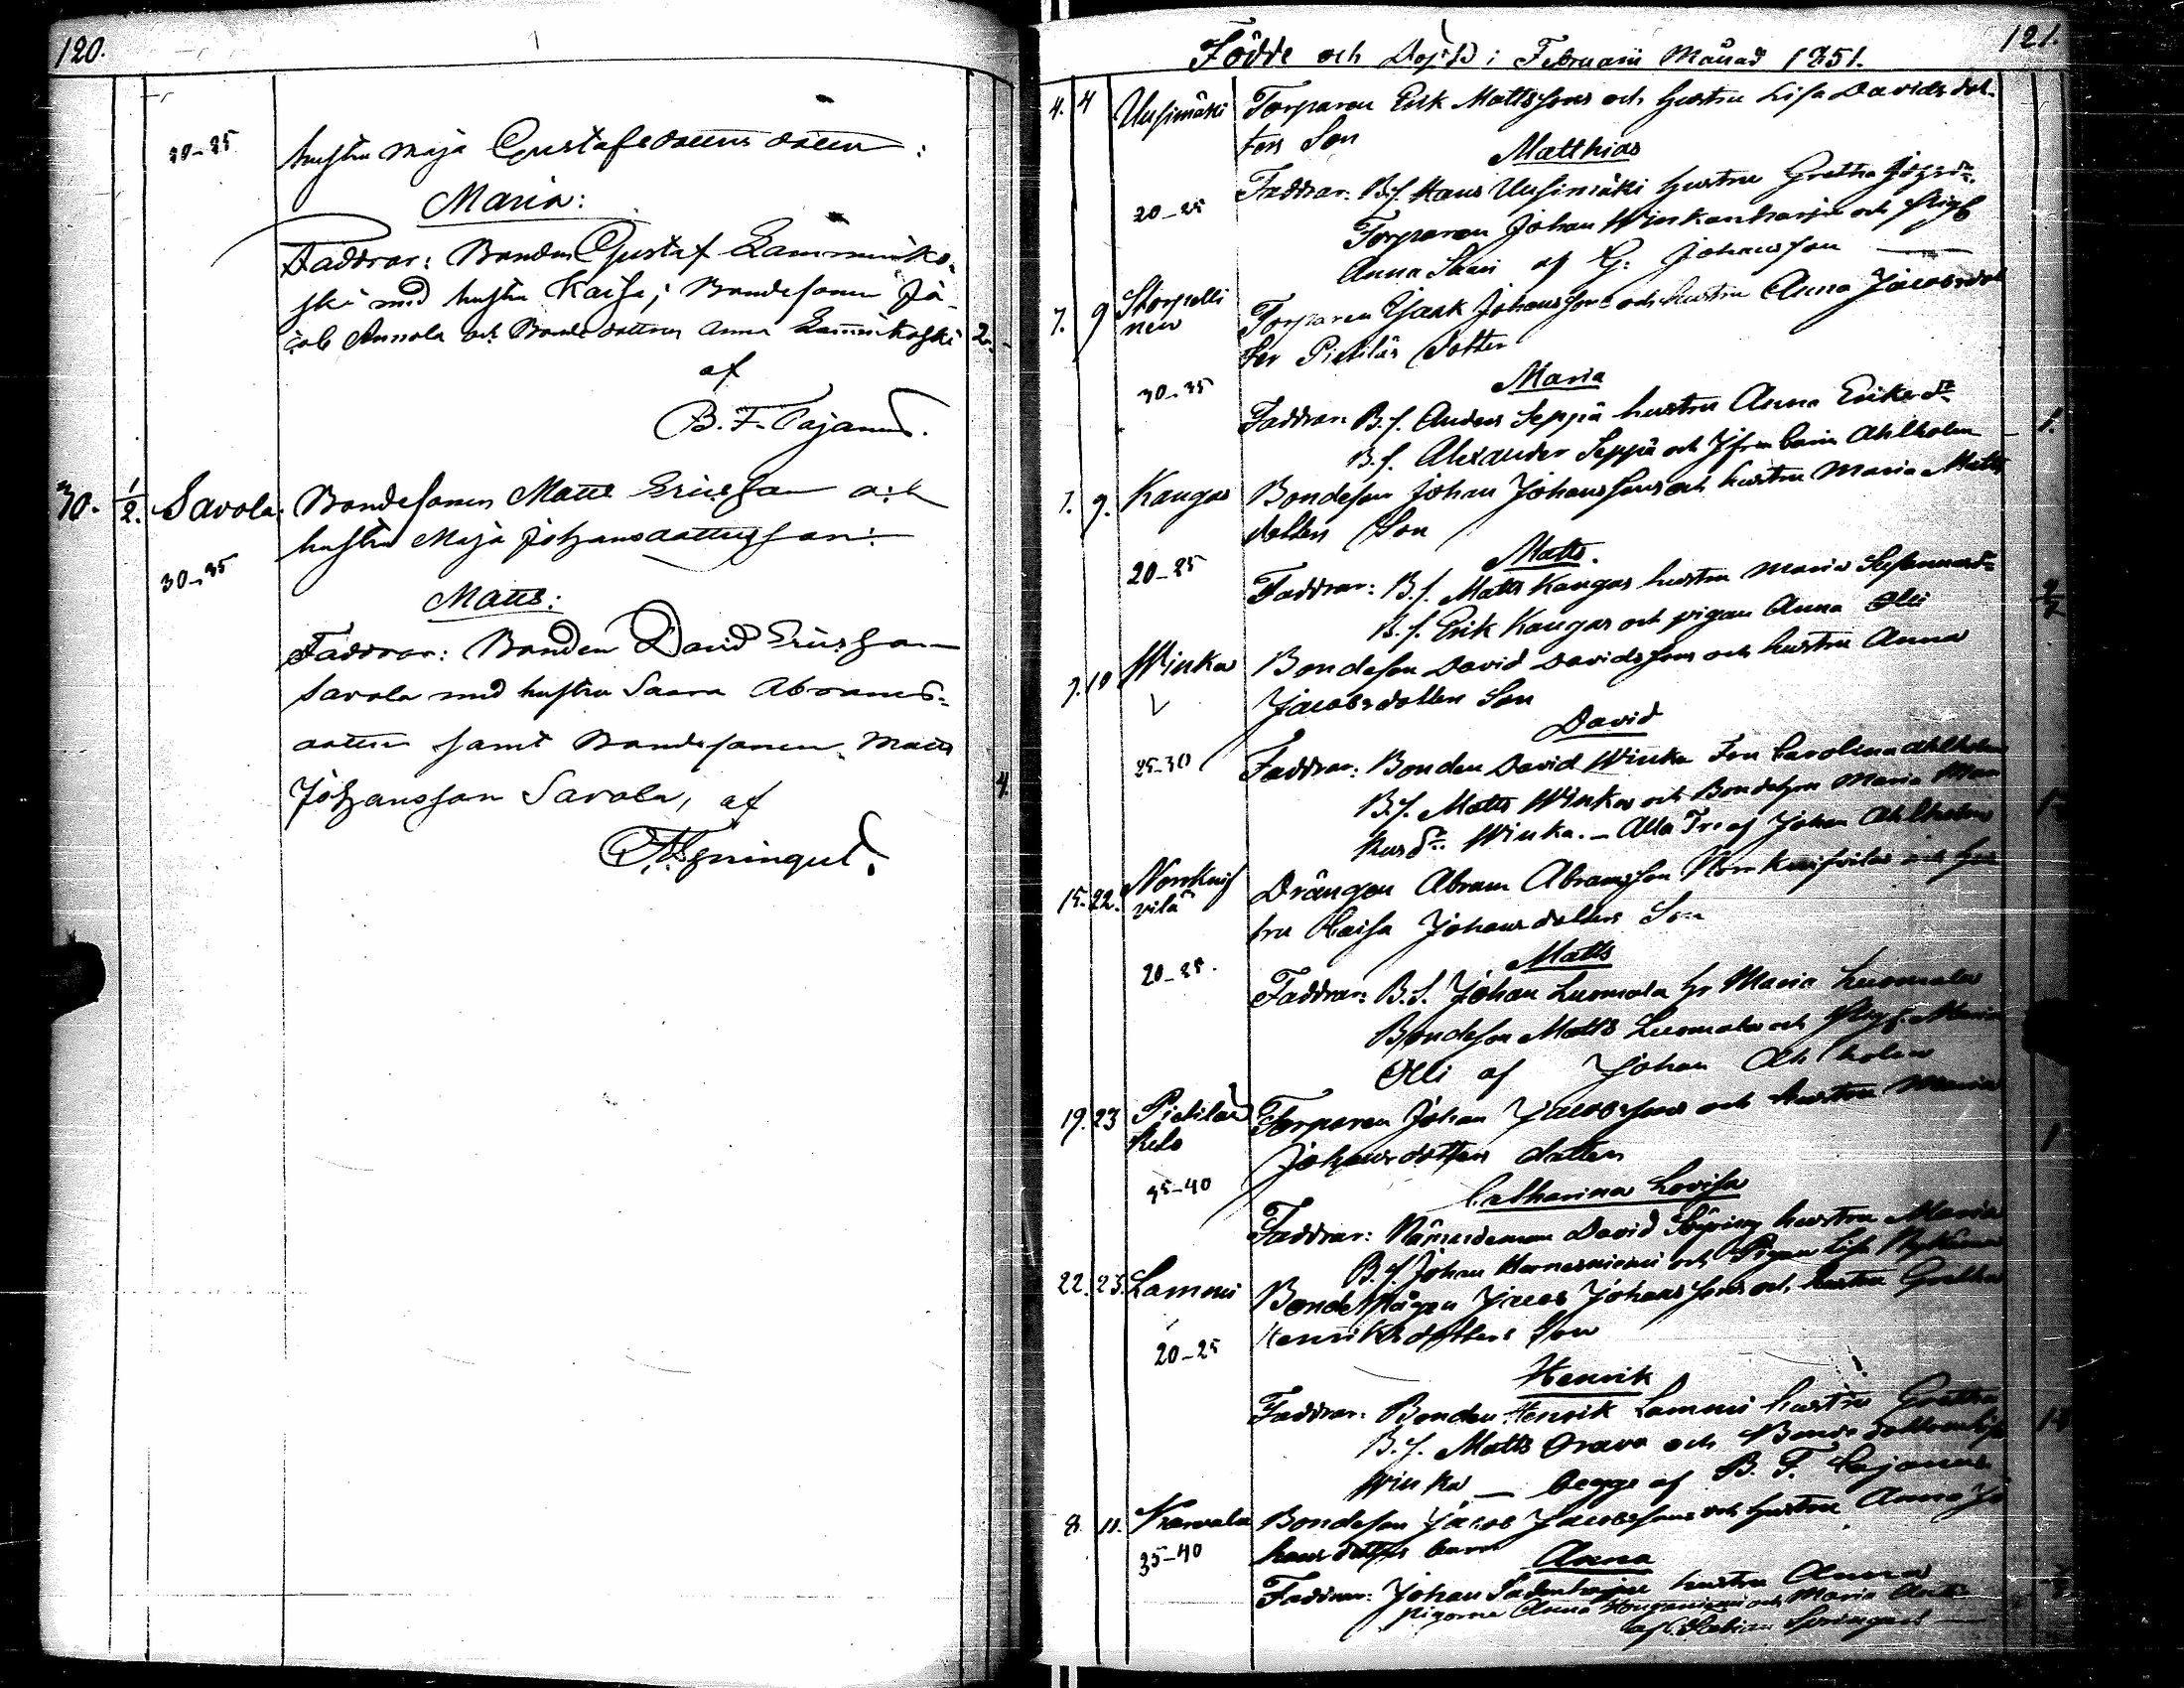 120.
30-35 hustru Maja Gustafsdotters dotter:
Maria:
Faddrar: Bonden Gustaf Lamminko-
ski med hustru Kaisa; Bondesonen Ja-
cob Annola och Bonde dottren Anna Lamminkoski 2.
af
B. F. Cajanus.
30. 1/2. Savola: Bondesonen Matts Ericsson och
hustru Maja Johansdotters son:
30-35
Matts:
Faddrar: Bonden David Ericsson
Savola med hustru Saara Abrams-
dotter samt Bondesonen Matts
Johansson Savola, af 4.
121.
Födde och Döpte i Februarii Månad 1851.
4. 4 Uusimäki Torparen Erik Mattssons och hustru Lisa Davidsdot-
ters Son
Matthias
20-25 Faddrar: B.s. Hans Uusimäki hustru Gretha
Torparen Johan Winkanharju och Pig.
Anna af G: Johansson
7. 9 Torparen Isaak Johanssons och hustru Anna Jacobsdot
ter Pietiläs dotter
Maria
30-35 Faddrar: B.s. Anders Seppä hustru Anna Eriksdr
B.s. Alexander Seppä och Jfru Carin Ahlholm 1.
7. 9. Kangas Bondeson Johan Johanssons och hustru Maria Matts
dotters Son
Matts.
20-25 Faddrar: B.s. Matts Kangas hustru Maria
B.s. Erik Kangas och pigan Anna Olli
7. 10 Winka Bondeson David Davidssons och hustru Anna
Jacobsdotters Son
David
25-30 Faddrar: Bonden David Winka Fru Carolina Ahlholm
B.s. Matts Winka och Bondehru Maria
Winka. - Alla Tre af Johan Ahlholm
15. 22. Drängen Abram Abramsson och hus
tru Caisa Johansdotters Son
Matts
20-25. Faddrar: B.S. Johan Luomala hr Maria Luomala
Bondeson Matts Luomala och Pig. Maria
Olli af Johan Ahlholm
19. 23 Torparen Johan Jacobssons och hustru Maria
Johansdotters dotter 1
35-40 Catharina Lovisa
Faddrar: Nämndeman David hustru Maria
B.s. Johan Harnesniemi och Pigan Lisa
22. 23. Lammi Bondemågen Jacob Johanssons och hustru Gretha
20-25 Henriksdotters Son
Henrik
Faddrar: Bonden Henrik Lammi hustru Gretha
B.s. Matts Orava och Bonde dottren Lisa
Winka - begge af B. F. Cajanus
8 11. Bondeson Jacob Jacobssons och hustru Anna Jo
35-40 hans dotters barn Anna
Faddrar: Johan hustru Anna
pigorna Anna och Maria